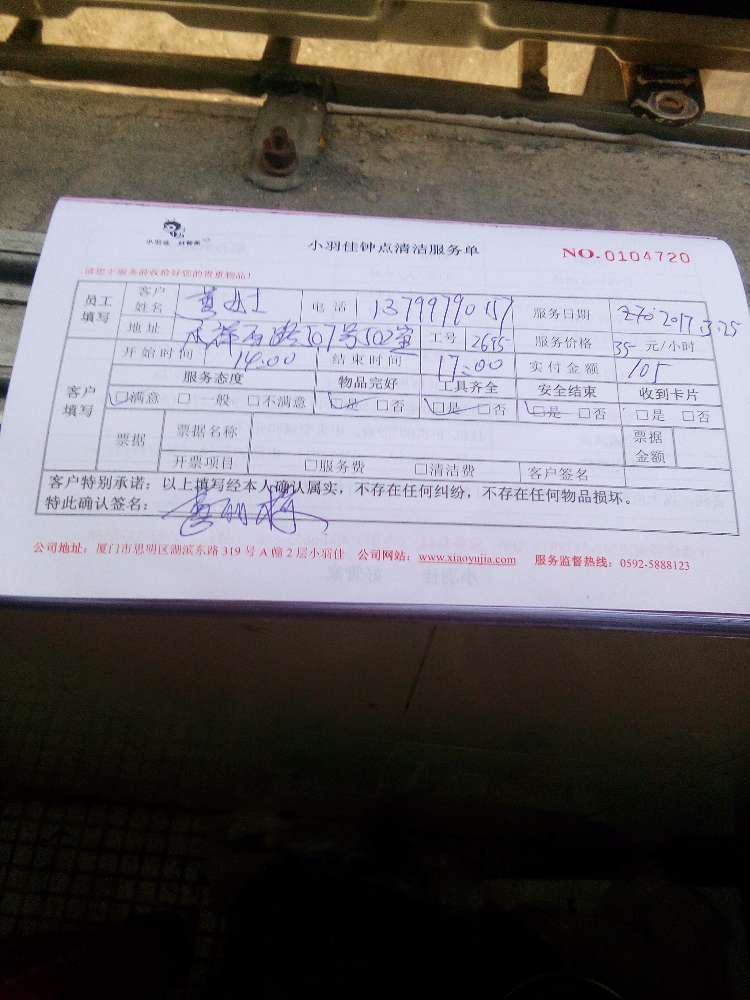 小羽佳 好管家
小羽佳钟点清洁服务单
NO.0104720
请您于服务前收拾好您的贵重物品!
员工填写 客户姓名 黄女士 电话 13799790157 服务日期 2017.3.25
地址 107号102室 工号 2695 服务价格 35 元/小时
开始时间 14:00 结束时间 17:00 实付金额 105
客户填写 服务态度 物品完好 工具齐全 安全结束 收到卡片
□满意 □一般 □不满意 □是 □否 □是 □否 □是 □否 □是 □否
票据 票据名称 票据金额
开票项目 □服务费 □清洁费 客户签名
客户特别承诺:以上填写经本人确认属实,不存在任何纠纷,不存在任何物品损坏。
特此确认签名:
公司地址:厦门市思明区湖滨东路 319 号 A 幢 2 层小羽佳 公司网站:www.xiaoyujia.com 服务监督热线:0592-5888123